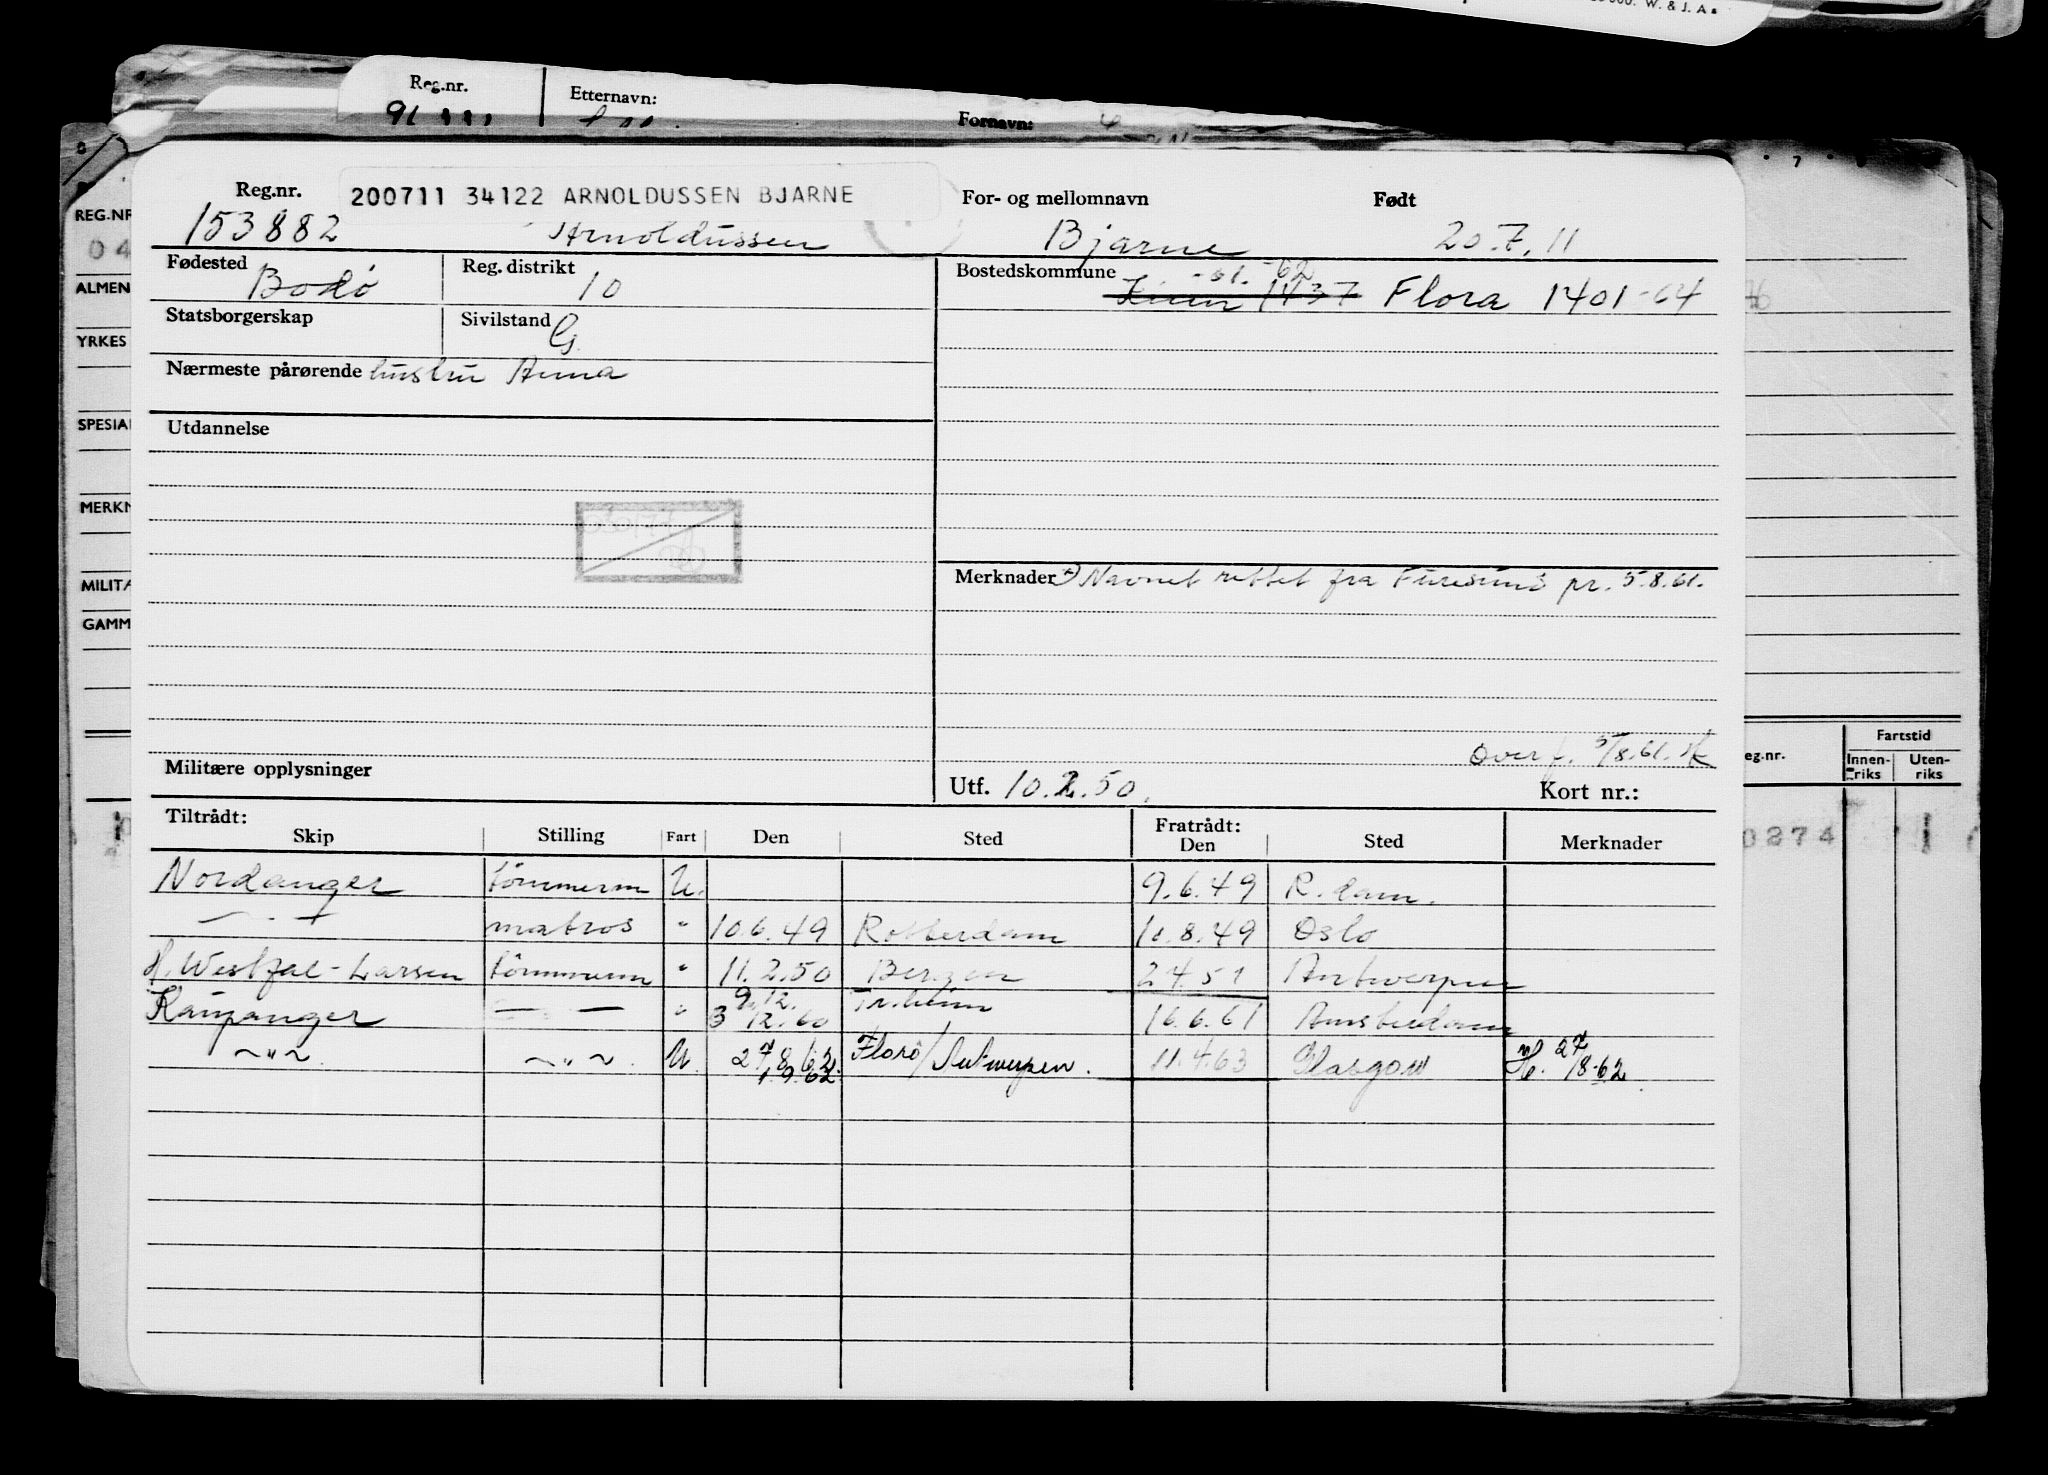 000. W. & J. A
Reg.nr. Etternavn: Fornavn:
91
7
REG.NR
04
ALMEN
YRKES
SPESIAL
MERKN
MILITÆ
GAMM
Reg.nr. 200711 34122 ARNOLDUSSEN BJARNE For- og mellomnavn Født
153882 Arnoldussen Bjarne 20.7.11
Fødested Bodø Reg. distrikt 10 Bostedskommune -61. -62
1437 Flora 1401-64
Statsborgerskap Sivilstand G.
Nærmeste pårørende hustru Anna
Utdannelse
Merknader *) Navnet rettet fra Furesund pr. 5.8.61.
Overf. 5/8.61.
Militære opplysninger
Utf. 10.2.50. Kort nr.:
eg.nr. Fartstid
Innen-riks Uten-riks
0274
Tiltrådt: Fratrådt:
Skip Stilling Fart Den Sted Den Sted Merknader
Nordanger tømmerm U. 9.6.49 R.dam.
— " — matros " 10.6.49 Rotterdam 10.8.49 Oslo
H. Westfal-Larsen tømmerm " 11.2.50 Bergen 2.4.51 Antwerpen
Kaupanger — — " 3/12.60 9.12. Tr.heim 16.6.61 Amsterdam
~"~. ~"~. U. 27/8.62. 1.9.62 Florø/Antwerpen. 11.4.63 Glasgow 27/8-62.